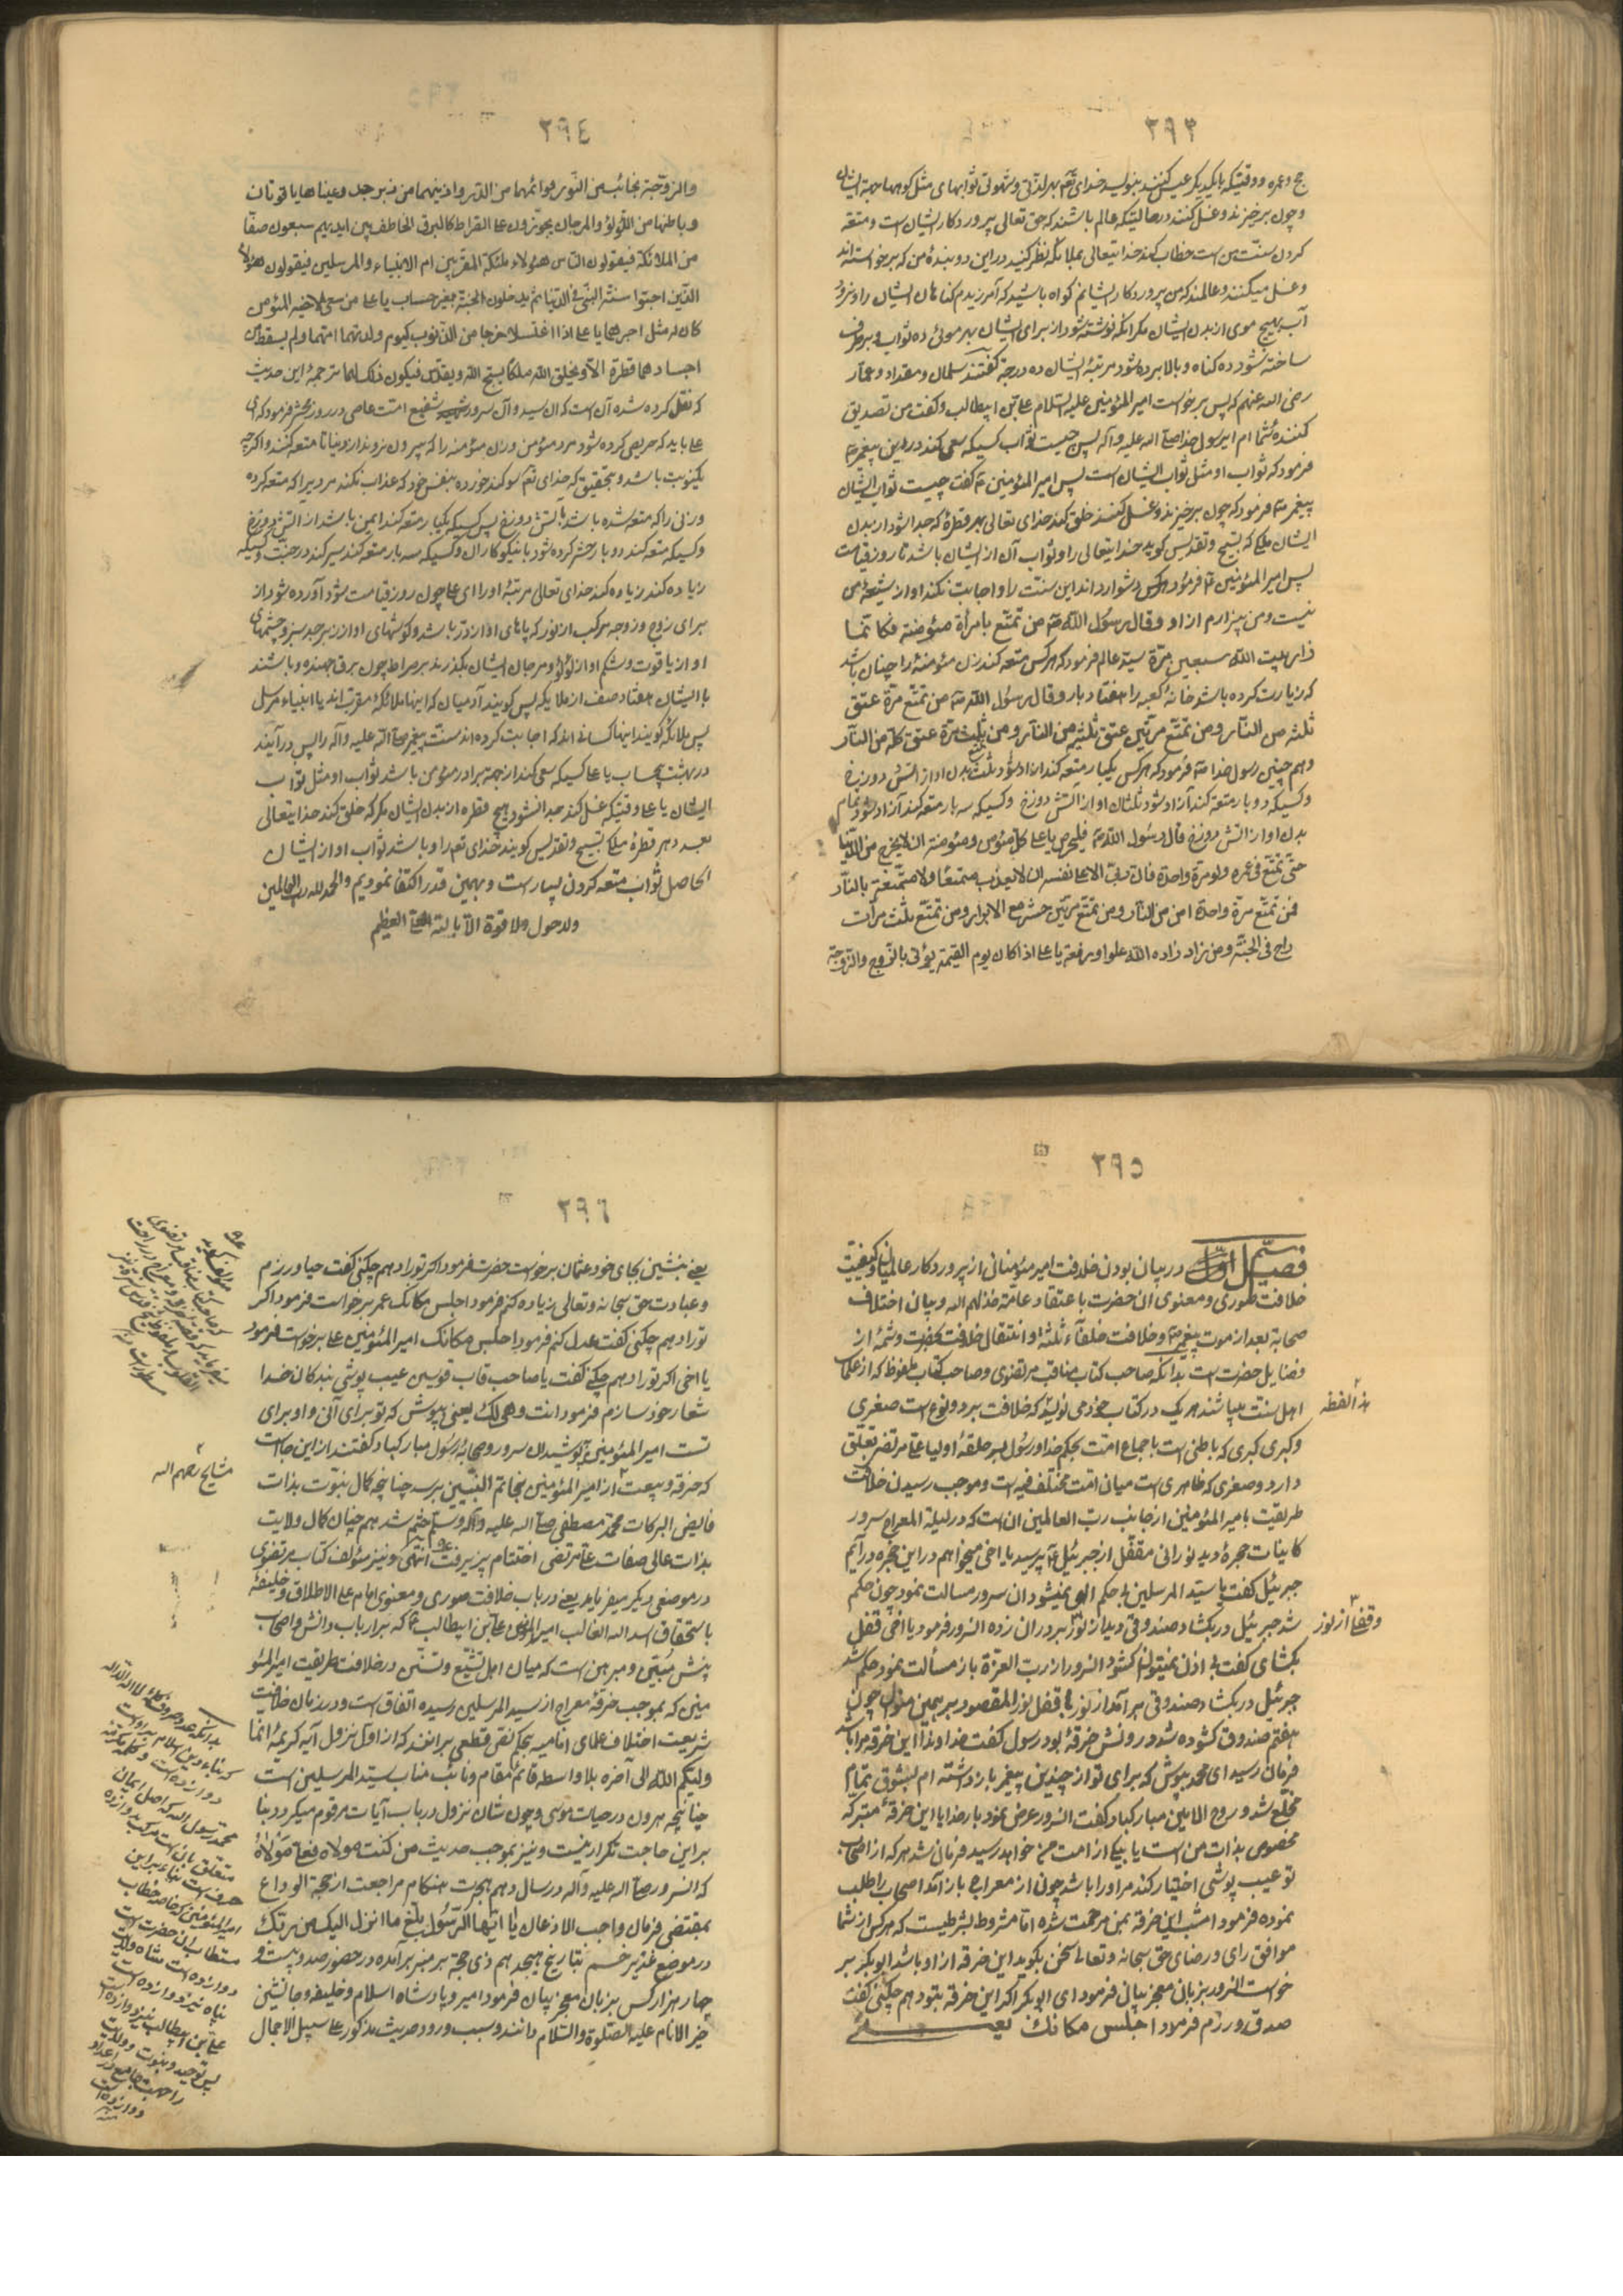 ٢٩٣
حج وعمره ووقتیکه بایکدیگر عیش کنند بنویسد خدای تعم بهر لذتی وشهوتی ثوابهای مثل کوهها بجهة ایشان
وچون برخیزند وغسل کنند درحالتیکه عالم باشند که حق تعالی پروردکار ایشان است ومتعه
کردن سنّت من است خطاب کند خدایتعالی بملائکه نظر کنید در این دو بندهٔ من که برخواسته‌اند
وغسل میکنند وعالمند که من پروردکار ایشانم کواه باشید که آمرزیدم کناهان ایشان را ونرود
آب بهیچ موی از بدن ایشان مکر آنکه نوشته شود از برای ایشان بهر موئی ده ثواب وبرطرف
ساخته شود ده کناه وبالا برده شود مرتبهٔ ایشان ده درجه کفتند سلمان ومقداد وعمّار
رضی الله عنهم که پس برخواست امیر المؤمنین علیه السّلام علی بن ابیطالب وکفت من تصدیق
کننده شما ام ای رسول خدا صلّی الله علیه وآله پس چیست ثواب کسیکه سعی کند در این پیغمبرص
فرمود که ثواب او مثل ثواب ایشان است پس امیر المؤمنین ع کفت چیست ثواب ایشان
پیغمبرص فرمود که چون برخیزند وغسل کنند خلق کند خدای تعالی بهر قطرهٔ که جدا شود از بدن
ایشان ملکی که تسبیح وتقدیس کوید خدایتعالی را وثواب آن از ایشان باشد تا روز قیامت
پس امیر المؤمنین ع فرمود هرکس دشوار داند این سنّت را واجابت نکند او از شیعهٔ من
نیست ومن بیزارم از او وقال رسول اللّه ص من تمتّع بامرأة مؤمنة فکانّما
زار بیت اللّه سبعین مرّة سیّد عالم فرمود که هرکس متعه کند زن مؤمنهٔ را چنان باشد
که زیارت کرده باشد خانهٔ کعبه را هفتاد بار وقال رسول اللّه ص من تمتّع مرّة عتق
ثلثه من النّار ومن تمتّع مرّتین عتق ثلثیه من النّار ومن تمتّع ثلث مرّة عتق کلّه من النّار
وهم چنین رسول خدا ص فرمود که هرکس یکبار متعه کند ازاد شود ثلث بدن او از اتش دوزخ
وکسیکه دوبار متعه کند آزاد شود ثلثان او از آتش دوزخ وکسیکه سه بار متعه کند آزاد شود تمام
بدن او از اتش دوزخ قال رسول اللّه ص فلیحرص یا علی کلّ مؤمن ومؤمنة ان لا یخرج من الدّنیا
حتّی تمتّع فی عمره ولو مرّة واحدة فانّ ربّی الا علی نفسه ان لا یعذّب متمتّعا ولا متمتّعة بالنّار
فمن تمتّع مرّة واحدة امن من النّار ومن تمتّع مرّتین حشر مع الابرار ومن تمتّع ثلث مرّات
راح فی الجنّة ومن زاد زاده اللّه علوا ورفعة یا علی اذا کان یوم القیمة یؤتی بالزّوج والزّوجة
٢٩٤
والزوجة نجائب من النّور قوائمها من الدّر واذنیهما من زبرجد وعیناها یاقوتان
وباطنها من اللّؤلؤ والمرجان یجوّزون علی الصّراط کالبرق الخاطف بین ایدیهم سبعون صفّا
من الملائکة فیقولون النّاس هؤلاء ملئکة المقرّبین ام الانبیاء والمرسلین فیقولون هؤلاء
الذّین اجابوا سنّة النّبی فی الدّنیا ثمّ یدخلون الجنّة بغیر حساب یا علی من سعی لاخیه المؤمن
کان له مثل اجرهما یا علی اذا اغتسلا خرجا من الذّنوب کیوم ولدتهما امّهما ولم یسقط من
اجسادهما قطرة الّا ویخلق اللّه ملکا یسبّح اللّه ویقدّس فیکون ذلک لهما ترجمهٔ این حدیث
که نقل کرده شده آن است که ان سید وآن سرور شفیع امّت عاصی در روز محشر فرمود که ای
علی باید که حریص کرده شود مرد مؤمن وزن مؤمنه را که بیرون نروند از دنیا تا متعه کنند واکرچه
یکنوبت باشد وبتحقیق که خدای تعم سوکند خورده بنفس خود که عذاب نکند مردیرا که متعه کرده
وزنی را که متعه شده باشد باتش دوزخ پس کسیکه یکبار متعه کند ایمن باشد از آتش دوزخ
وکسیکه متعه کند دوبار حشر کرده شود با نیکوکاران وکسیکه سه بار متعه کند سیر کند در جنّت وکسیکه
زیاده کند زیاده کند خدای تعالی مرتبهٔ اورا ای علی چون روز قیامت شود آورده شود از
برای زوج وزوجه مرکب از نور که پاهای او از در باشد وکوشهای او از زبرجد سبز وچشمهای
او از یاقوت وشکم او از لؤلؤ ومرجان ایشان بکذرند بر صراط چون برق جهنده وباشند
با ایشان هفتاد صف از ملایکه پس کویند آدمیان که اینها ملائکهٔ مقرّب‌اند یا انبیاء مرسل
پس ملائکه کویند اینها کسانی اند که اجابت کرده‌اند سنّت پیغمبر صلّی الله علیه وآله را پس درآیند
در بهشت بیحساب یا علی کسیکه سعی کند از جهة برادر مؤمن باشد ثواب او مثل ثواب
ایشان یا علی وقتیکه غسل کنند جدا نشود هیچ قطره از بدن ایشان مکر که خلق کند خدایتعالی
بعدد هر قطرهٔ ملکی تسبیح وتقدیس کویند خدای تعم را وباشد ثواب او از ایشان
الحاصل ثواب متعه کردن بسیار است وبهمین قدر اکتفا نمودیم والحمد لله ربّ العالمین
ولا حول ولا قوّة الّا بالله العلیّ العظیم
٢٩٥
فصل اوّل در بیان بودن خلافت امیر مؤمنانی از پروردکار عالمیان وکیفیّت
خلافت صوری ومعنوی ان حضرت باعتقاد عامّه خذلهم الله وبیان اختلاف
صحابة بعد از موت پیغمبرص وخلافت خلفآء ثلثه وانتقال خلافت بحضرت وشمّهٔ از
فضایل حضرت است بدانکه صاحب کتاب مناقب مرتضوی وصاحب کتاب ملفوظ که از علمای
اهل سنّت میباشند هر یک در کتاب خود می نویسد که خلافت بر دو نوع است صغری
وکبری کبری که باطنی است باجماع امّت بحکم خدا ورسول بسر حلقهٔ اولیا علی مرتضی تعلّق
دارد وصغری که ظاهری است میان امّت مختلف فیه است وموجب رسیدن خلافت
طریقت بامیر المؤمنین از جانب ربّ العالمین ان است که در لیلة المعراج سرور
کاینات حجرهٔ دید نورانی مقفّل از جبرئیل ع پرسید یا اخی میخواهم در این حجره درآیم
جبرئیل کفت یا سیّد المرسلین بی حکم الهی نمیشود ان سرور مسالت نمود چون حکم
شد جبرئیل در بکشاد صندوقی دید از نور بر در ان زده السّرور فرمود یا اخی قفل
بکشای کفت بی اذن نمیتوانم کشود السّرور از ربّ العزّة باز مسالت نمود حکم شد
جبرئیل در بکشاد صندوقی برآمد از نور با قفل نور المقصود بر همین منوال چون
هفتم صندوق کشوده شد درونش خرقهٔ بود رسول کفت خداوندا این خرقه مرا باید
فرمان رسید ای محمد بپوش که برای تو از چندین پیغمبر باز داشته ام بشوق تمام
مخلّع شد وروح الامین مبارکباد کفت السّرور عرض نمود بار خدایا این خرقهٔ متبرّکه
مخصوص بذات من است یا بیکی از امّت من خواهد رسید فرمان شد هرکه از اصحاب
تو عیب پوشی اختیار کند مر اورا باشد چون از معراج باز آمد اصحاب را طلب
نموده فرمود امشب این خرقه بمن مرحمت شده امّا مشروط بشرطیست که هرکس از شما
موافق رای ورضای حق سبحانه وتعالی سخن بکوید این خرقه از او باشد ابوبکر بر
خواست السّرور بزبان معجز بیان فرمود ای ابوبکر اکر این خرقه بتو دهم چکنی کفت
صدق ورزم فرمود اجلس مکانک یعنی
هذا لفظه
وقفل از نور
٢٩٦
یعنی بنشین بجای خود عثمان برخواست حضرت فرمود اکر تورا دهم چکنی کفت حیا ورزم
وعبادت حق سبحانه وتعالی زیاده کنم فرمود اجلس مکانک عمر برخواست فرمود اکر
تورا دهم چکنی کفت عدل کنم فرمود اجلس مکانک امیر المؤمنین علی برخواست فرمود
یا اخی اکر تورا دهم چکنی کفت یا صاحب قاب قوسین عیب پوشی بندکان خدا
شعار خود سازم فرمود انت وهی لک یعنی بپوش که تو برای آنی واو برای
تست امیر المؤمنین پوشید ان سرور وصحابهٔ رسول مبارکباد کفتند از این جاست
که خرقه وبیعت از امیر المؤمنین بخاتم النّبیّین برسد چنانچه کمال نبوّت بذات
فایض البرکات محمّد مصطفی صلّی الله علیه وآله وسلّم ختم شد هم چنان کمال ولایت
بذات عالی صفات علی مرتضی اختتام پزیرفت انتهی ونیز مؤلف کتاب مرتضوی
در موضعی دیکر میفرماید یعنی در باب خلافت صوری ومعنوی امام علی الاطلاق وخلیفهٔ
باستحقاق اسد الله الغالب امیر المؤمنین علی بن ابیطالب ع که بر ارباب دانش واصحاب
بینش مبیّن ومبرهن است که میان اهل تشیّع وتسنّن در خلافت طریقت امیر المؤ
منین که بموجب خرقهٔ معراج از سید المرسلین رسیده اتّفاق است ودر زمان خلافت
شریعت اختلاف علمای امامیه بحکم نصّ قطعی برانند که از اوّل نزول آیهٔ کریمهٔ انّما
ولیّکم اللّه الی آخره بلا واسطه قائم مقام ونائب مناب سیّد المرسلین است
چنانچه هرون در حیات موسی وچون شان نزول در باب آیات مرقوم میکردد بنا
براین حاجت تکرار نیست ونیز بموجب حدیث من کنت مولاه فعلیّ مولاه
که السّرور صلّی الله علیه وآله در سال دهم هجرت هنکام مراجعت از حجّة الوداع
بمقتضی فرمان واجب الاذعان یا ایّها الرّسول بلّغ ما انزل الیک من ربّک
در موضع غدیر خم بتاریخ هیجدهم ذی حجّة بر منبر برآمده در حضور صد وبیست و
چهار هزار کس بزبان معجز بیان فرمود امیر وپادشاه اسلام وخلیفه وجانشین
خیر الانام علیه الصّلوة والسّلام دانند وسبب ورود حدیث مذکور علی سبیل الاجمال
مشایخ رحمهم الله
بدانکه عدد حروف کلمهٔ لا اله الّا الله
که بناء دین اسلام بر او است
دوازده است وکلمهٔ
محمّد رسول الله که اصل ایمان
متعلّق بان است مرکب بدوازده
حرف است بناء براین
امیر المؤمنین که خاصه خطاب
مستطاب ان حضرت است
دوازده است
پناه نیز دوازده است
علی بن ابیطالب نیز دوازده است
پس توحید ونبوت وولایت
دوازده است